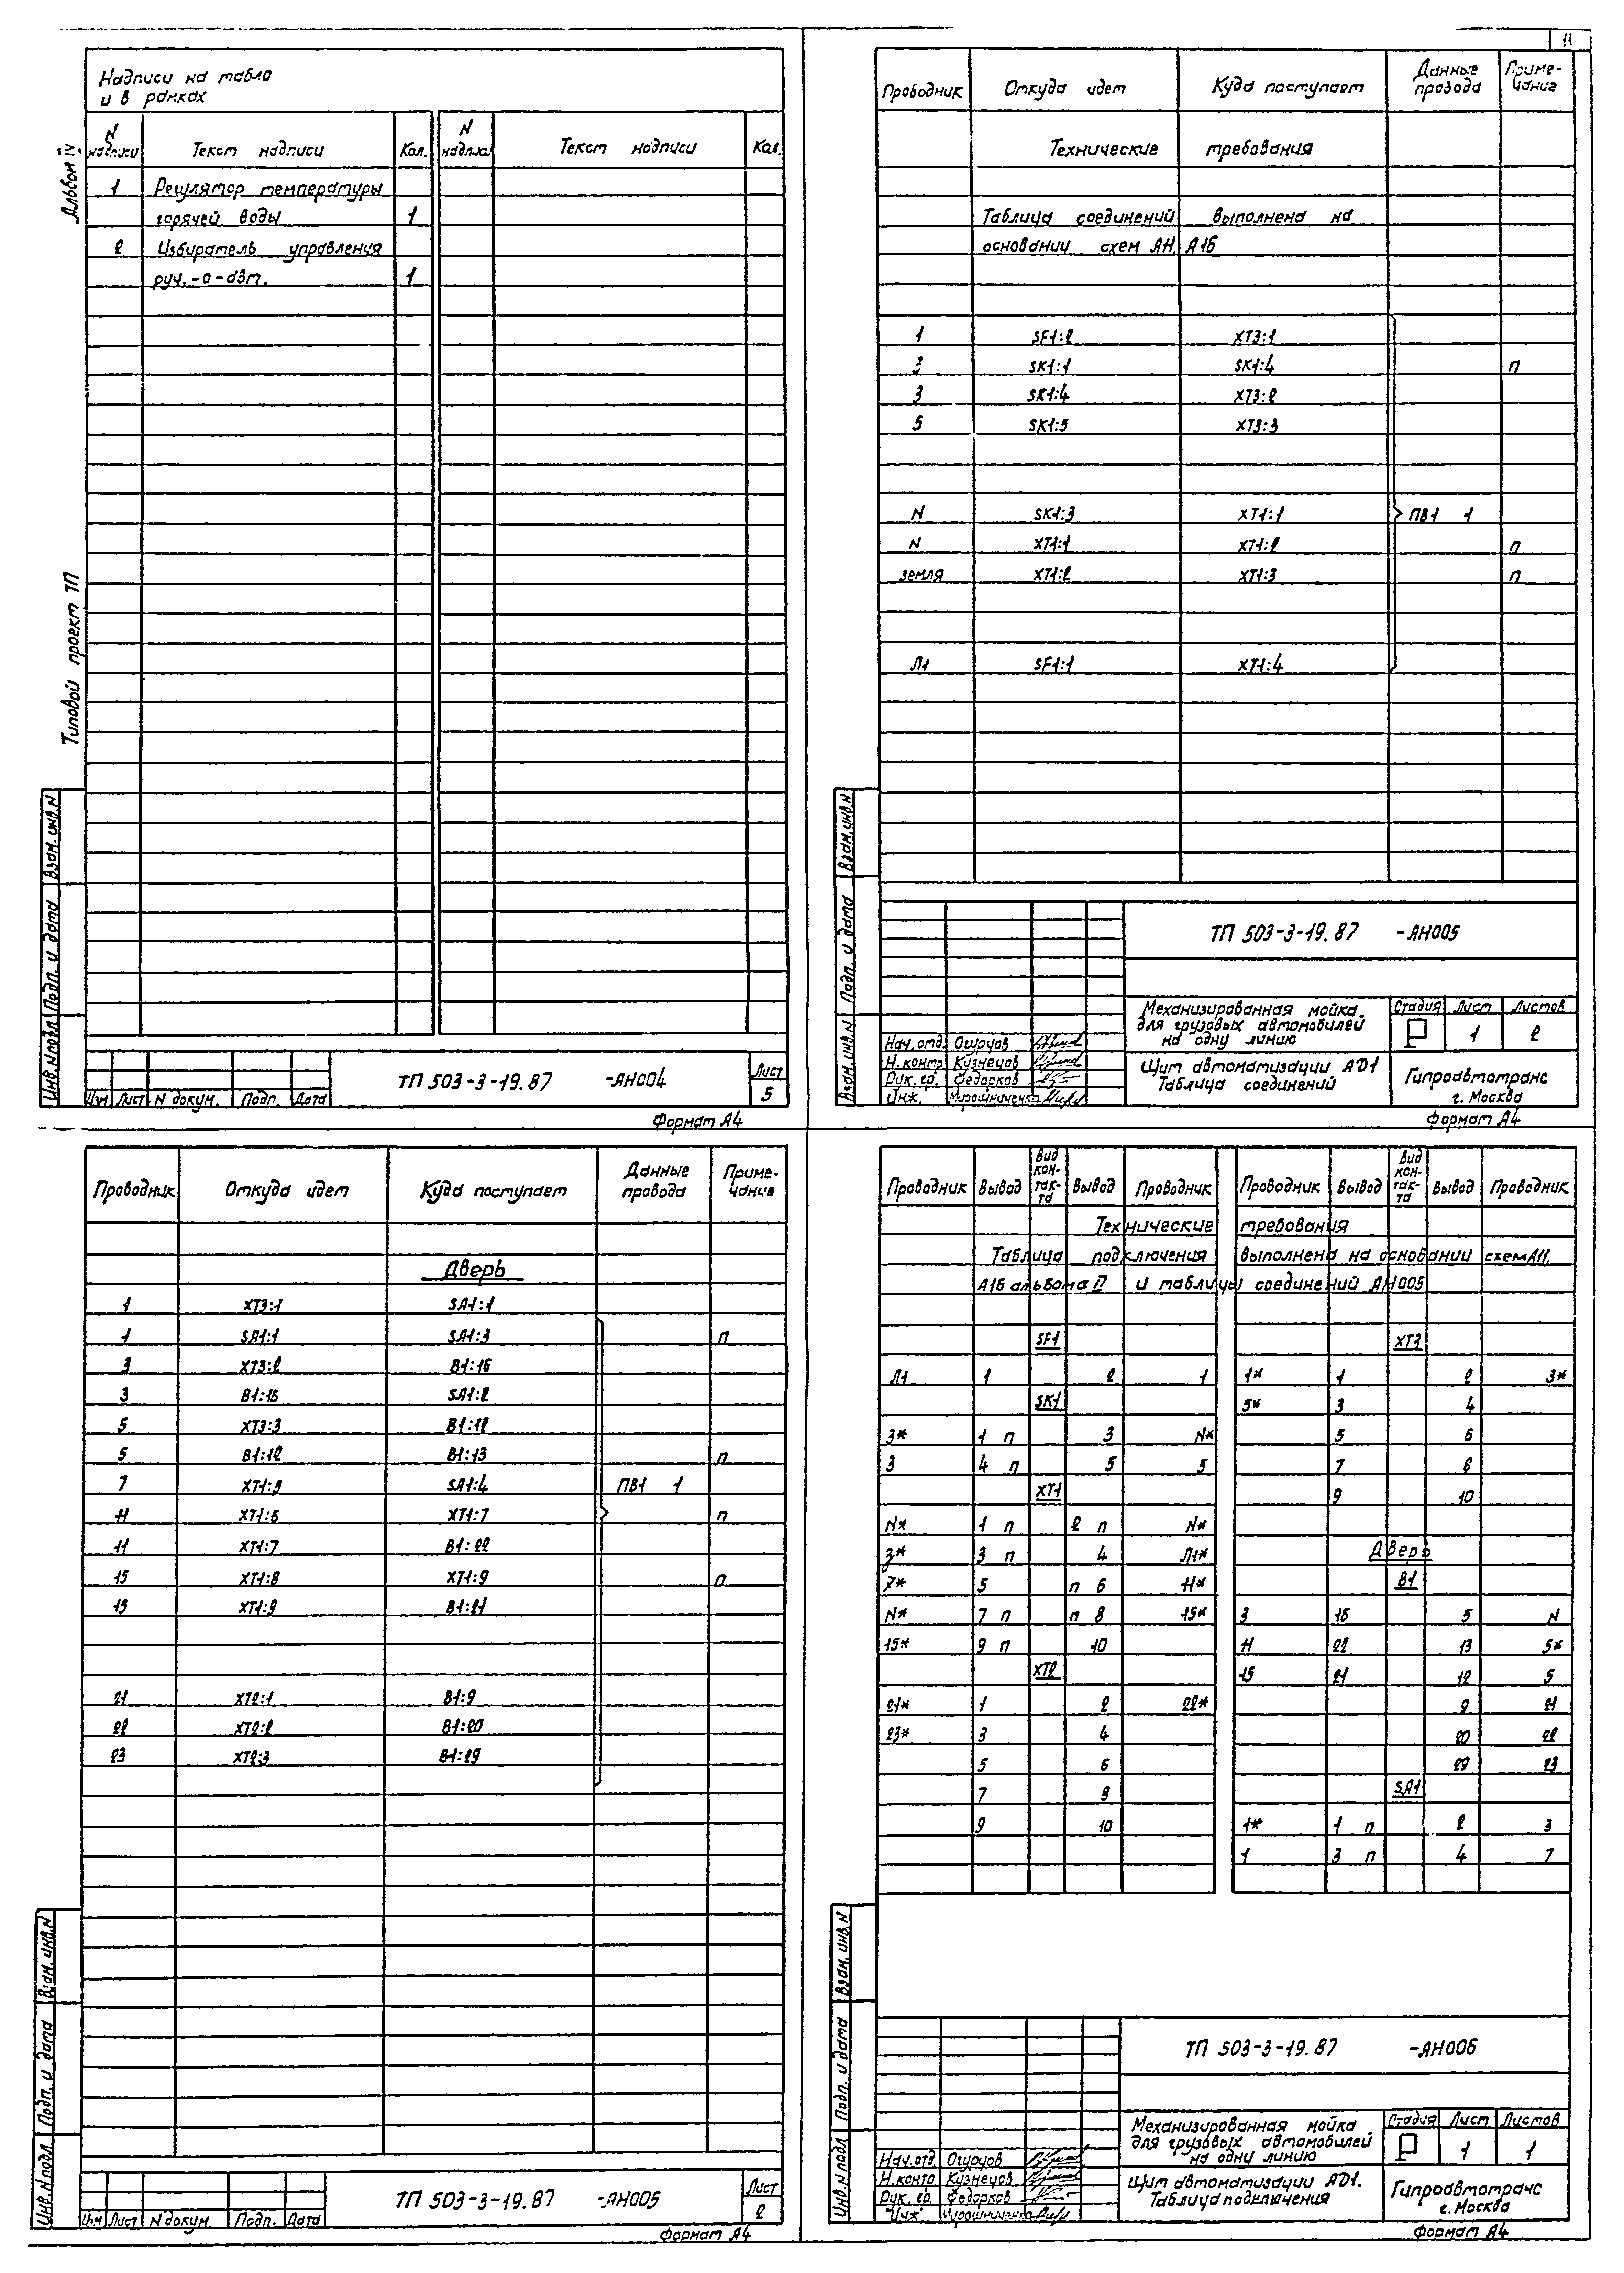 11
Альбом IV
Типовой проект ТП
Надписи на табло
и в рамках
N надписи Текст надписи Кол. N надписи Текст надписи Кол.
1 Регулятор температуры
горячей воды 1
2 Избиратель управления
руч.-о-авт. 1
Взам. инв. N
Подп. и дата
Инв. N подл
Изм Лист N докум. Подп. Дата
ТП 503-3-19.87 -АН004
Лист
5
Формат А4
Проводник Откуда идет Куда поступает Данные провода Примечание
Технические требования
Таблица соединений выполнена на
основании схем А11, А16
1 SF1:2 XT3:1
SK1:1 SK1:4 п
3 SK1:4 XT3:2
5 SK1:5 XT3:3
N SK1:3 XT1:1 ПВ1 1
N XT1:1 XT1:2 п
земля XT1:2 XT1:3 п
Л1 SF1:1 XT1:4
Взам. инв. N
Подп. и дата
Взам. инв. N
ТП 503-3-19.87 -АН005
Механизированная мойка
для грузовых автомобилей
на одну линию
Стадия Лист Листов
Р 1 2
Нач. отд. Огурцов
Н. контр Кузнецов
Рук. гр. Федорков
Инж. Мирошниченко
Щит автоматизации АD1
Таблица соединений
Гипроавтотранс
г. Москва
Формат А4
Проводник Откуда идет Куда поступает Данные провода Примечание
Дверь
1 XT3:1 SA1:1
1 SA1:1 SA1:3 п
3 XT3:2 B1:16
3 B1:16 SA1:2
5 XT3:3 B1:12
5 B1:12 B1:13 п
7 XT1:5 SA1:4 ПВ1 1
11 XT1:6 XT1:7 п
11 XT1:7 B1:22
15 XT1:8 XT1:9 п
15 XT1:9 B1:21
21 XT2:1 B1:9
22 XT2:2 B1:20
23 XT2:3 B1:29
Взам. инв. N
Подп. и дата
Инв. N подл.
Изм Лист N докум. Подп. Дата
ТП 503-3-19.87 -АН005
Лист
2
Формат А4
Проводник Вывод Вид контакта Вывод Проводник Проводник Вывод Вид контакта Вывод Проводник
Технические требования
Таблица подключения выполнена на основании схем А11,
А16 альбома II и таблицы соединений АН005
SF1 XT3
Л1 1 2 1 1* 1 2 3*
SK1 5* 3 4
3* 1 п 3 N* 5 6
3 4 п 5 5 7 8
XT1 9 10
N* 1 п 2 п N*
3 п 4 Л1* Дверь
7* 5 п 6 11* B1
N* 7 п п 8 15* 3 16 5 N
15* 9 п 10 11 22 13 5*
XT2 15 21 12 5
21* 1 2 22* 9 21
23* 3 4 20 22
5 6 29 23
7 8 SA1
9 10 1* 1 п 2 3
1 3 п 4 7
Взам. инв. N
Подп. и дата
Инв. N подл
ТП 503-3-19.87 -АН006
Механизированная мойка
для грузовых автомобилей
на одну линию
Стадия Лист Листов
Р 1 1
Нач. отд. Огурцов
Н. контр Кузнецов
Рук. гр. Федорков
Инж. Мирошниченко
Щит автоматизации АD1.
Таблица подключения
Гипроавтотранс
г. Москва
Формат А4